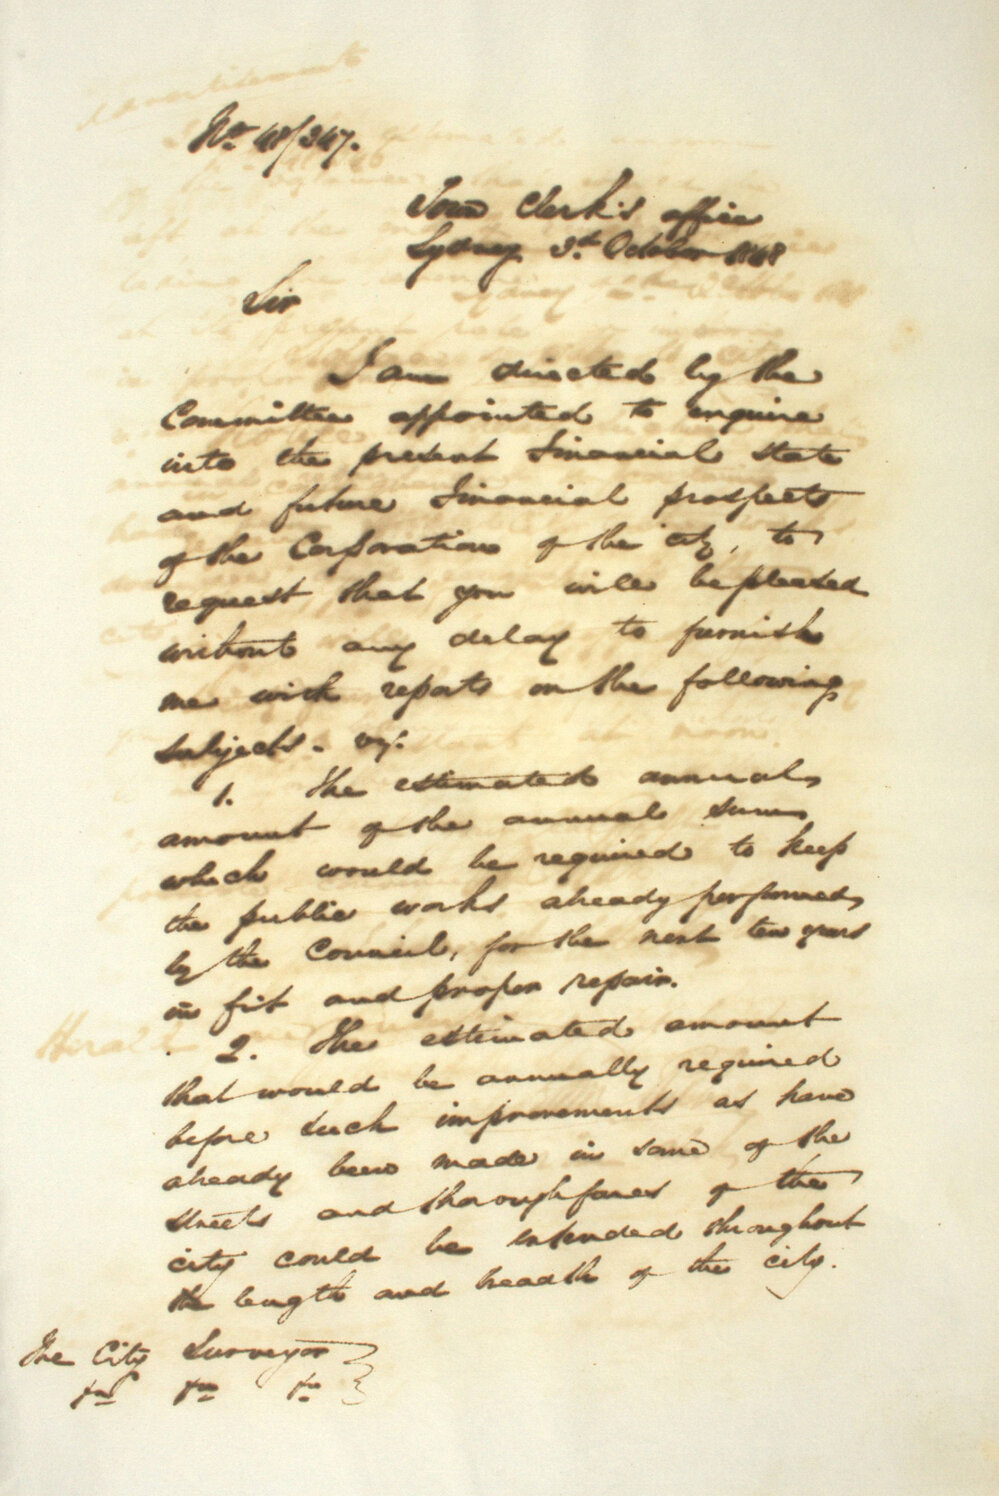 No. 48/347.
Town Clerk's office
Sydney 3d. October 1848
Sir
I am directed by the
Committee appointed to enquire
into the present financial state
and future financial prospects
of the Corporation of the city, to
request that you will be pleased
without any delay to furnish
me with reports on the following
subjects. viz:
1. The estimated annual
amount of the annual sum
which would be required to keep
the public works already performed
by the Council, for the next ten years
in fit and proper repair.
2. The estimated amount
that would be annually required
before such improvements as have
already been made in some of the
streets and thoroughfares of the
city could be extended throughout
the length and breadth of the city.
The City Surveyor
&c &c &c